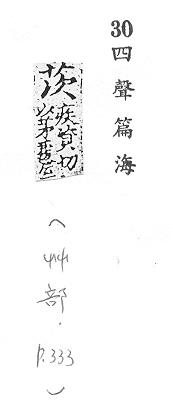 30四聲篇海
茨
疾資切
以茅葢屋
（艸部．P.333）